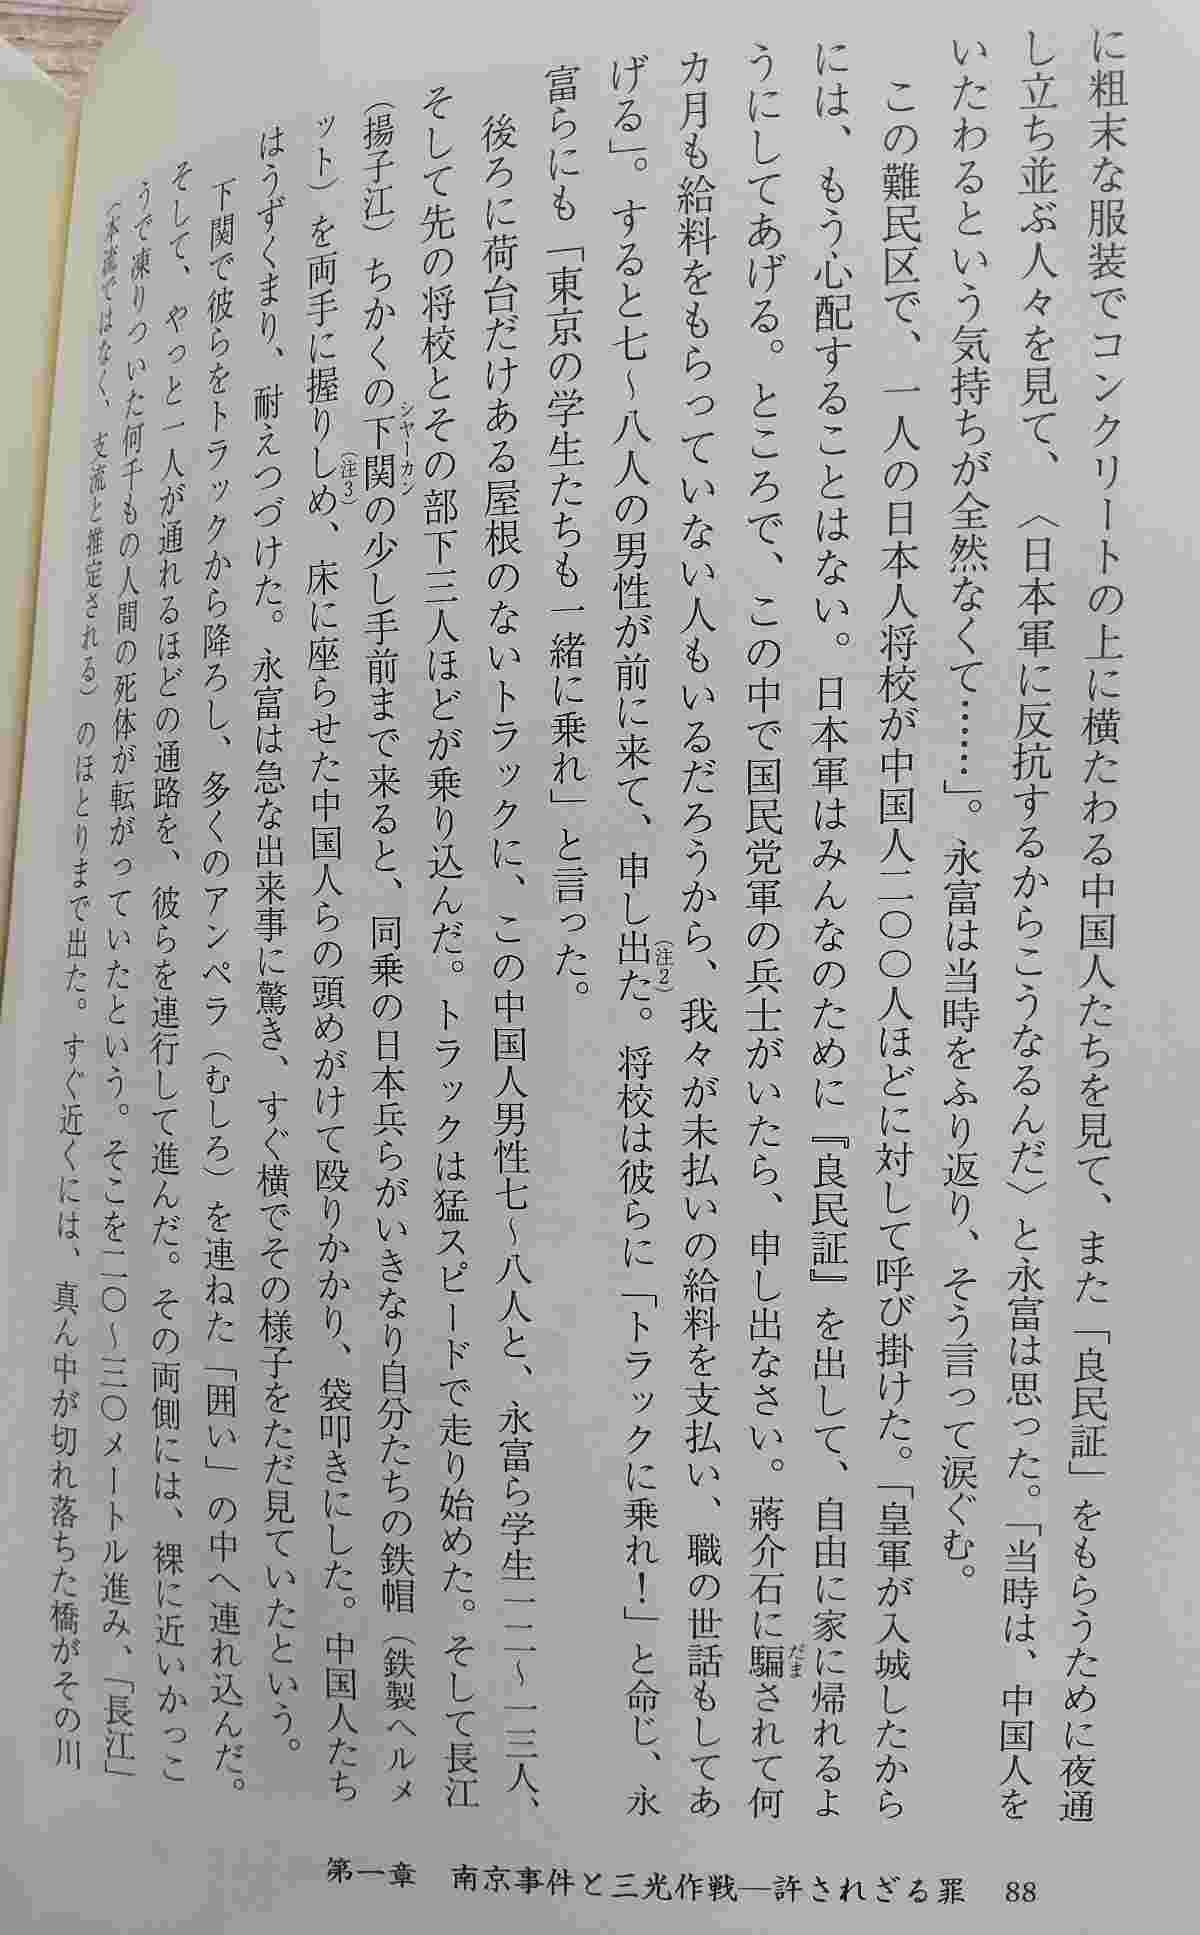 に粗末な服装でコンクリートの上に横たわる中国人たちを見て、また「良民証」をもらうために夜通
し立ち並ぶ人々を見て、〈日本軍に反抗するからこうなるんだ〉と永富は思った。「当時は、中国人を
いたわるという気持ちが全然なくて……」。永富は当時をふり返り、そう言って涙ぐむ。
この難民区で、一人の日本人将校が中国人二〇〇人ほどに対して呼び掛けた。「皇軍が入城したから
には、もう心配することはない。日本軍はみんなのために『良民証』を出して、自由に家に帰れるよ
うにしてあげる。ところで、この中で国民党軍の兵士がいたら、申し出なさい。蔣介石に騙されて何
だま
カ月も給料をもらっていない人もいるだろうから、我々が未払いの給料を支払い、職の世話もしてあ
げる」。すると七～八人の男性が前に来て、申し出た。将校は彼らに「トラックに乗れ！」と命じ、永
（注2）
富らにも「東京の学生たちも一緒に乗れ」と言った。
後ろに荷台だけある屋根のないトラックに、この中国人男性七～八人と、永富ら学生一二～一三人、
そして先の将校とその部下三人ほどが乗り込んだ。トラックは猛スピードで走り始めた。そして長江
（揚子江）ちかくの下関の少し手前まで来ると、同乗の日本兵らがいきなり自分たちの鉄帽（鉄製ヘルメ
シヤーカン
ット）を両手に握りしめ、床に座らせた中国人らの頭めがけて殴りかかり、袋叩きにした。中国人たち
（注3）
はうずくまり、耐えつづけた。永富は急な出来事に驚き、すぐ横でその様子をただ見ていたという。
下関で彼らをトラックから降ろし、多くのアンペラ（むしろ）を連ねた「囲い」の中へ連れ込んだ。
そして、やっと一人が通れるほどの通路を、彼らを連行して進んだ。その両側には、裸に近いかっこ
うで凍りついた何千もの人間の死体が転がっていたという。そこを二〇～三〇メートル進み、「長江」
（本流ではなく、支流と推定される）のほとりまで出た。すぐ近くには、真ん中が切れ落ちた橋がその川
第一章 南京事件と三光作戦―許されざる罪 88